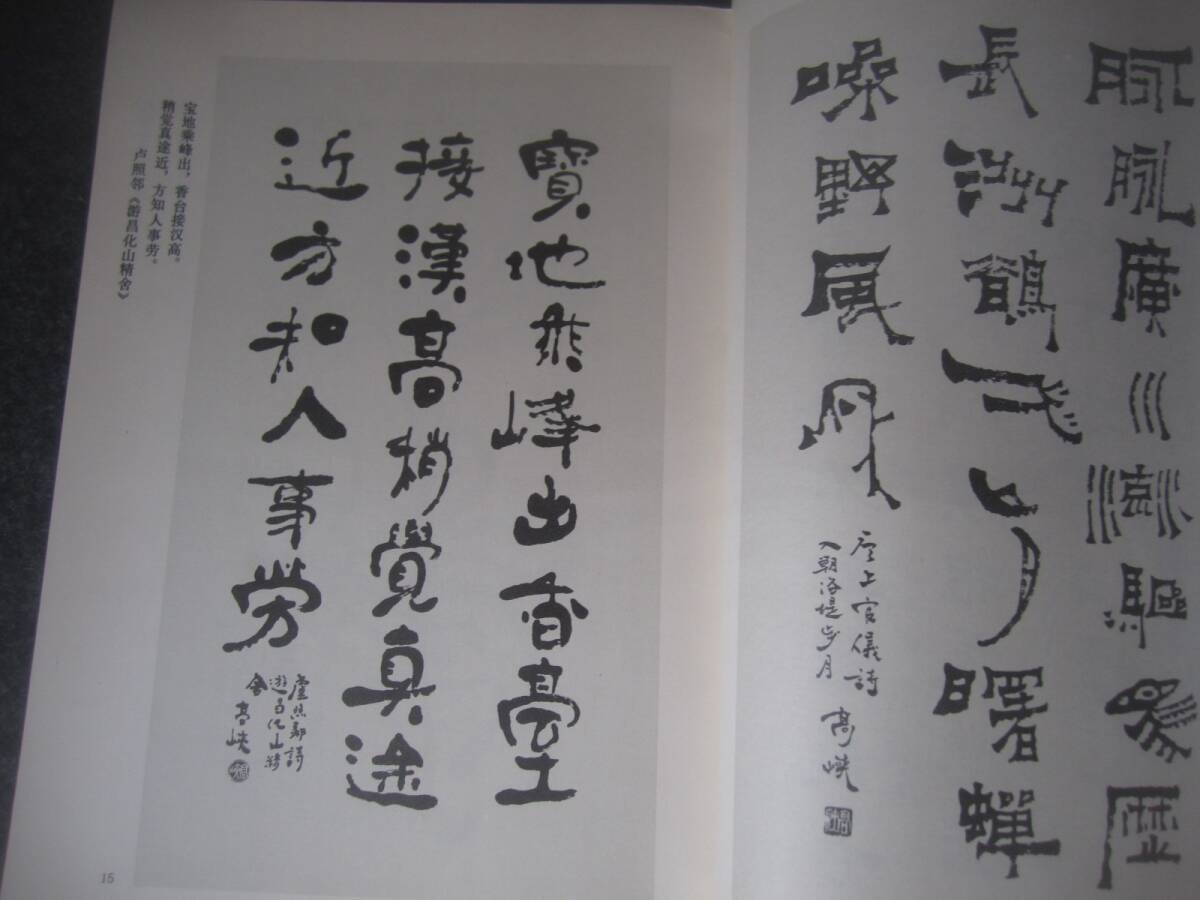 脈脈廣川流驅馬歷
長洲鵲飛山月曙蟬
噪野風秋
上官儀詩
入朝洛堤步月
高峡
寶地乘峰出香臺
接漢高稍覺真途
近方知人事勞
盧照鄰詩
遊昌化山精
舍 高峡
宝地乘峰出，香台接汉高。
稍觉真途近，方知人事劳。
卢照邻《游昌化山精舍》
15